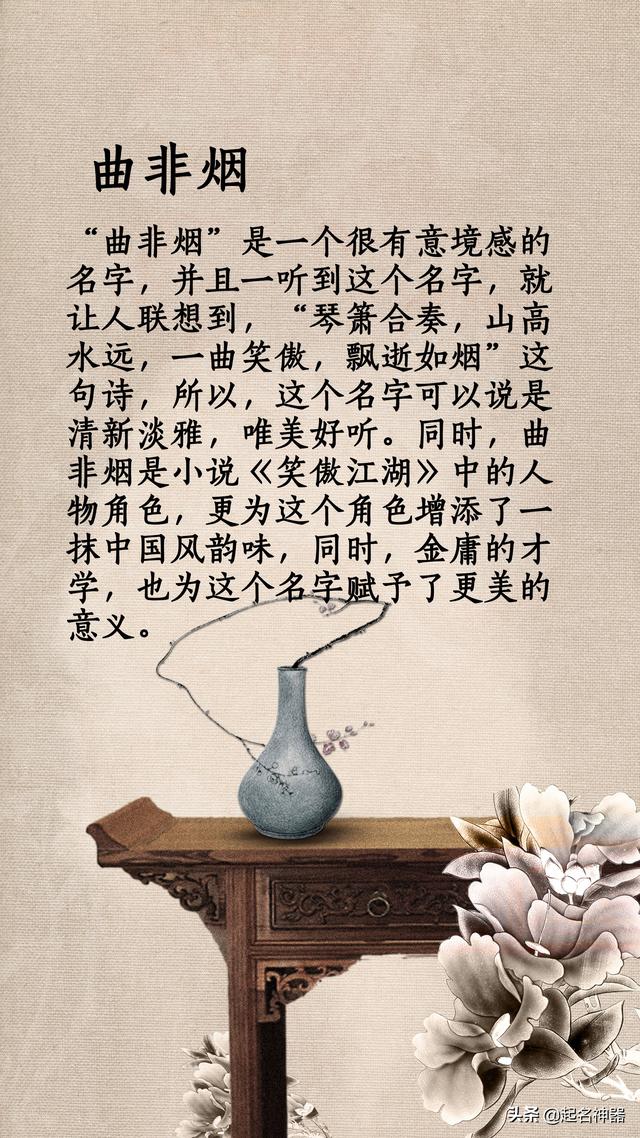 曲非烟
“曲非烟”是一个很有意境感的
名字，并且一听到这个名字，就
让人联想到，“琴箫合奏，山高
水远，一曲笑傲，飘逝如烟”这
句诗，所以，这个名字可以说是
清新淡雅，唯美好听。同时，曲
非烟是小说《笑傲江湖》中的人
物角色，更为这个角色增添了一
抹中国风韵味，同时，金庸的才
学，也为这个名字赋予了更美的
意义。
头条 @起名神器